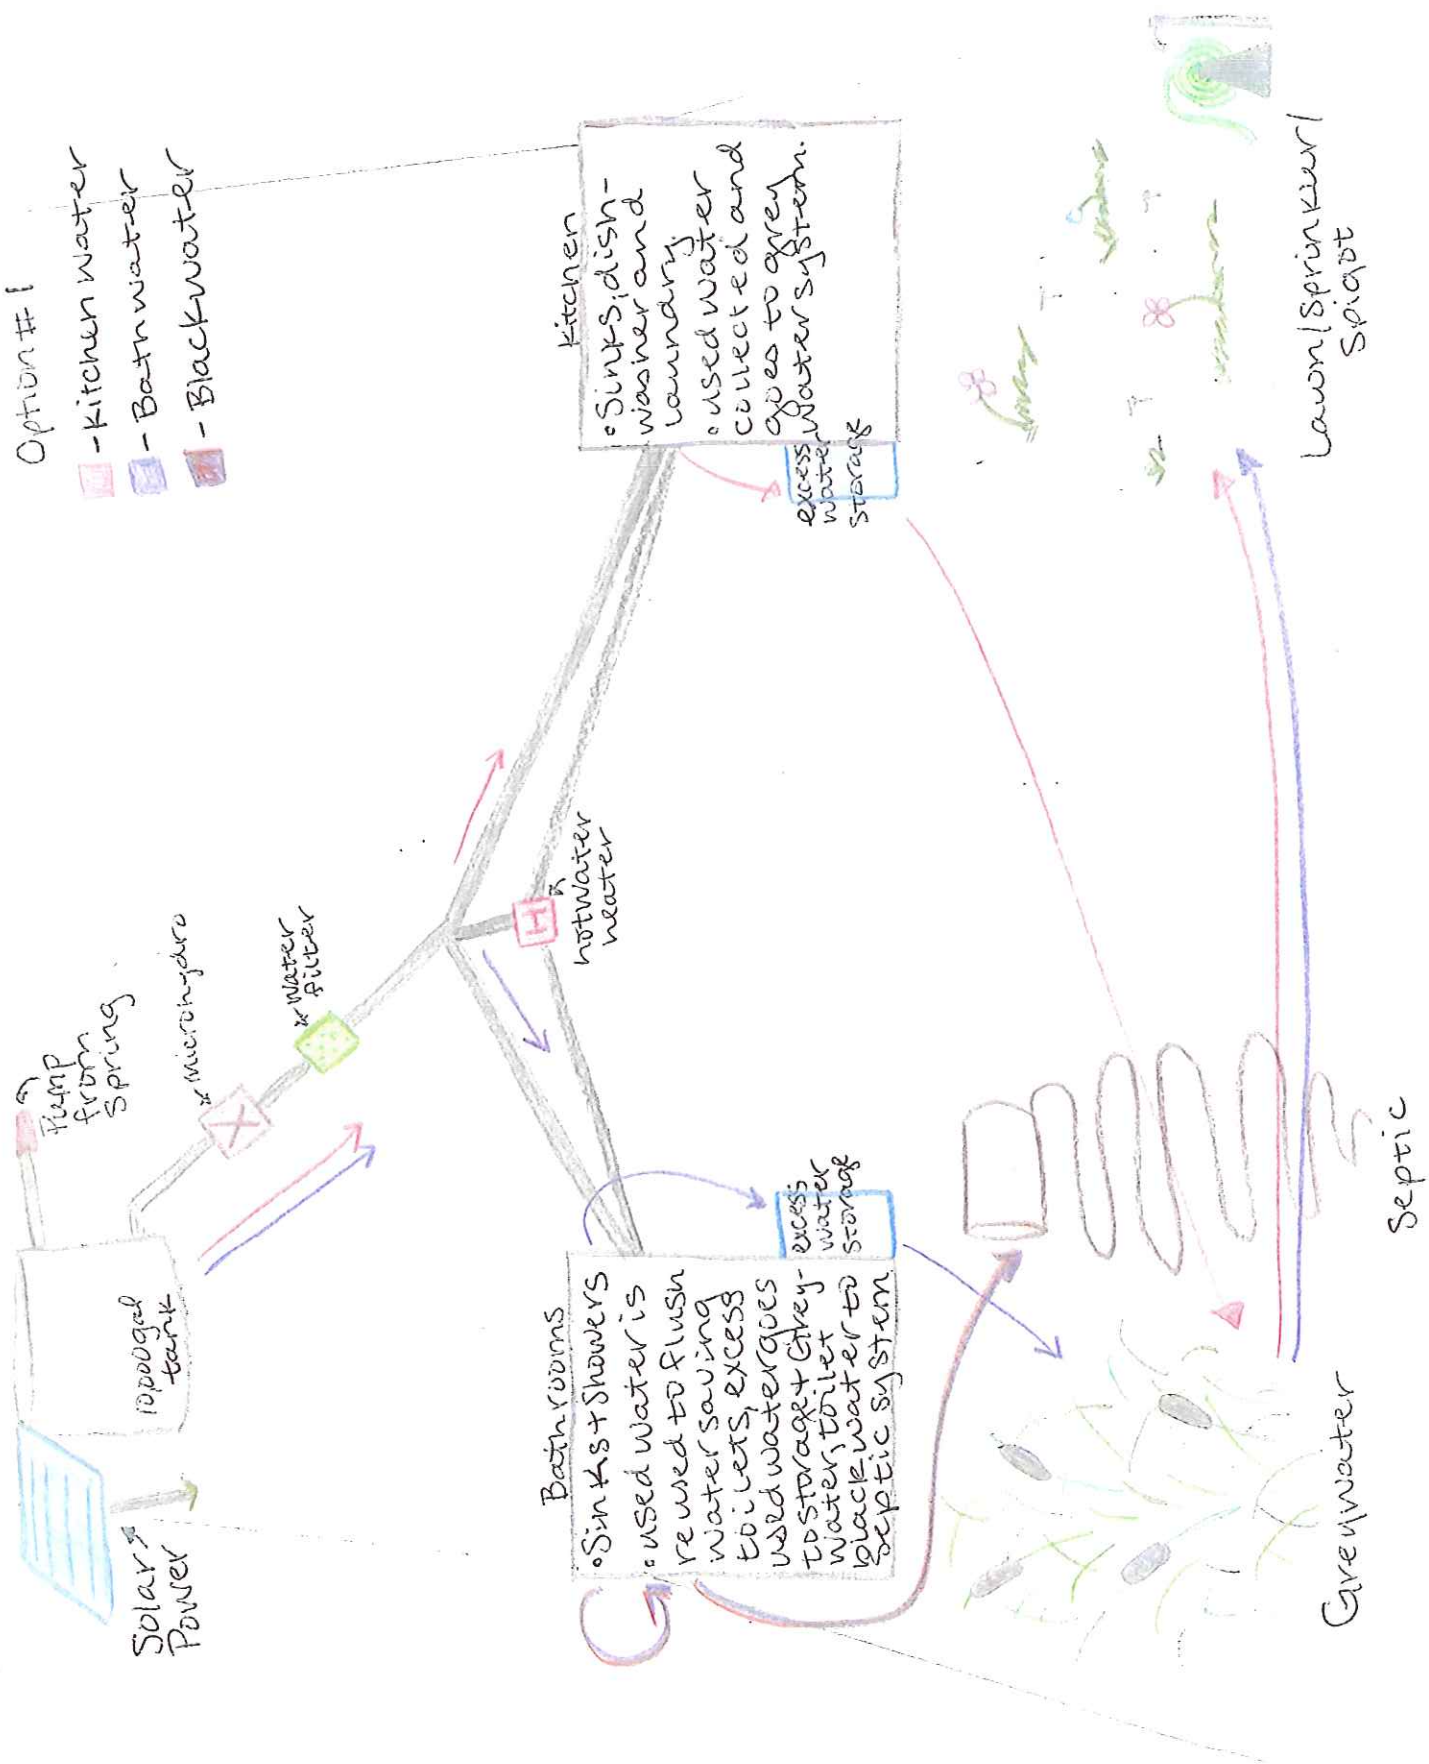 Option #1
- Kitchen water
- Bathwater
- Blackwater
Pump
from
Spring
microhydro
water
filter
10,000 gal
tank
Solar
Power
H
hotwater
heater
Kitchen
• Sinks, dish-
washer and
laundry.
• used water
collected and
goes to grey
water system.
excess
water
storage
Bathrooms
• Sinks + Showers
• used water is
reused to flush
water saving
toilets, excess
used water goes
to storage + Grey-
water, toilet
blackwater to
septic system
excess
water
storage
Greywater
Septic
Lawn/Sprinkler/
Spigot